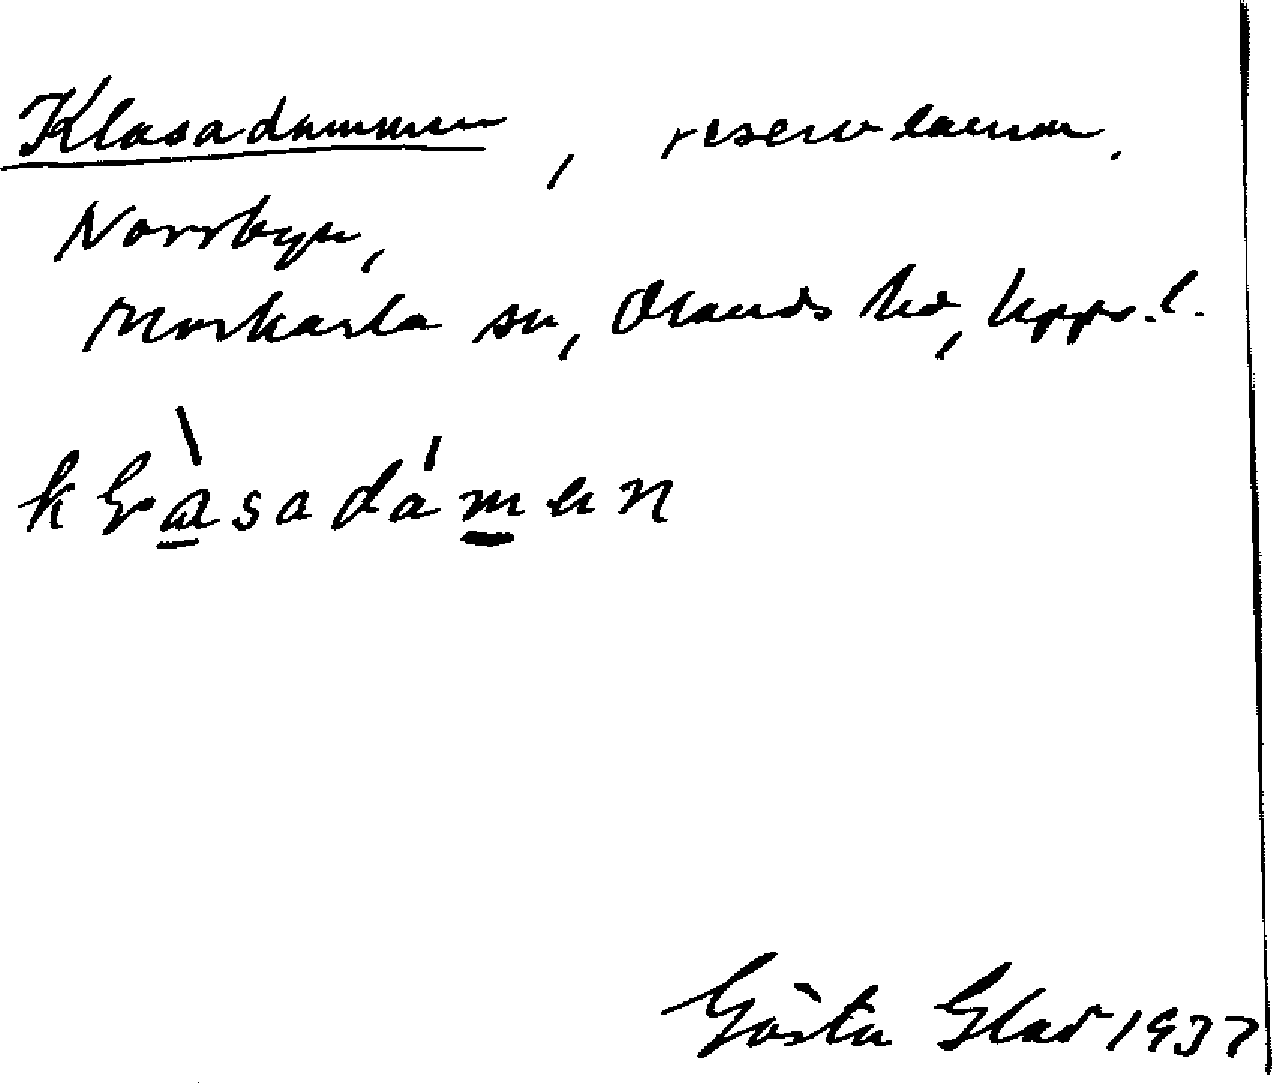 Klasadammen, reservdamm.
Norrbyn,
Morkarla sn, Olands hd, Upps. l.
klàsadámen
Gösta Glad 1937